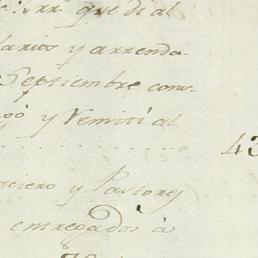 que di al
larios y arrenda-
Septiembre cons
y Vemiti al
43
aciero y Pastores
entregados à